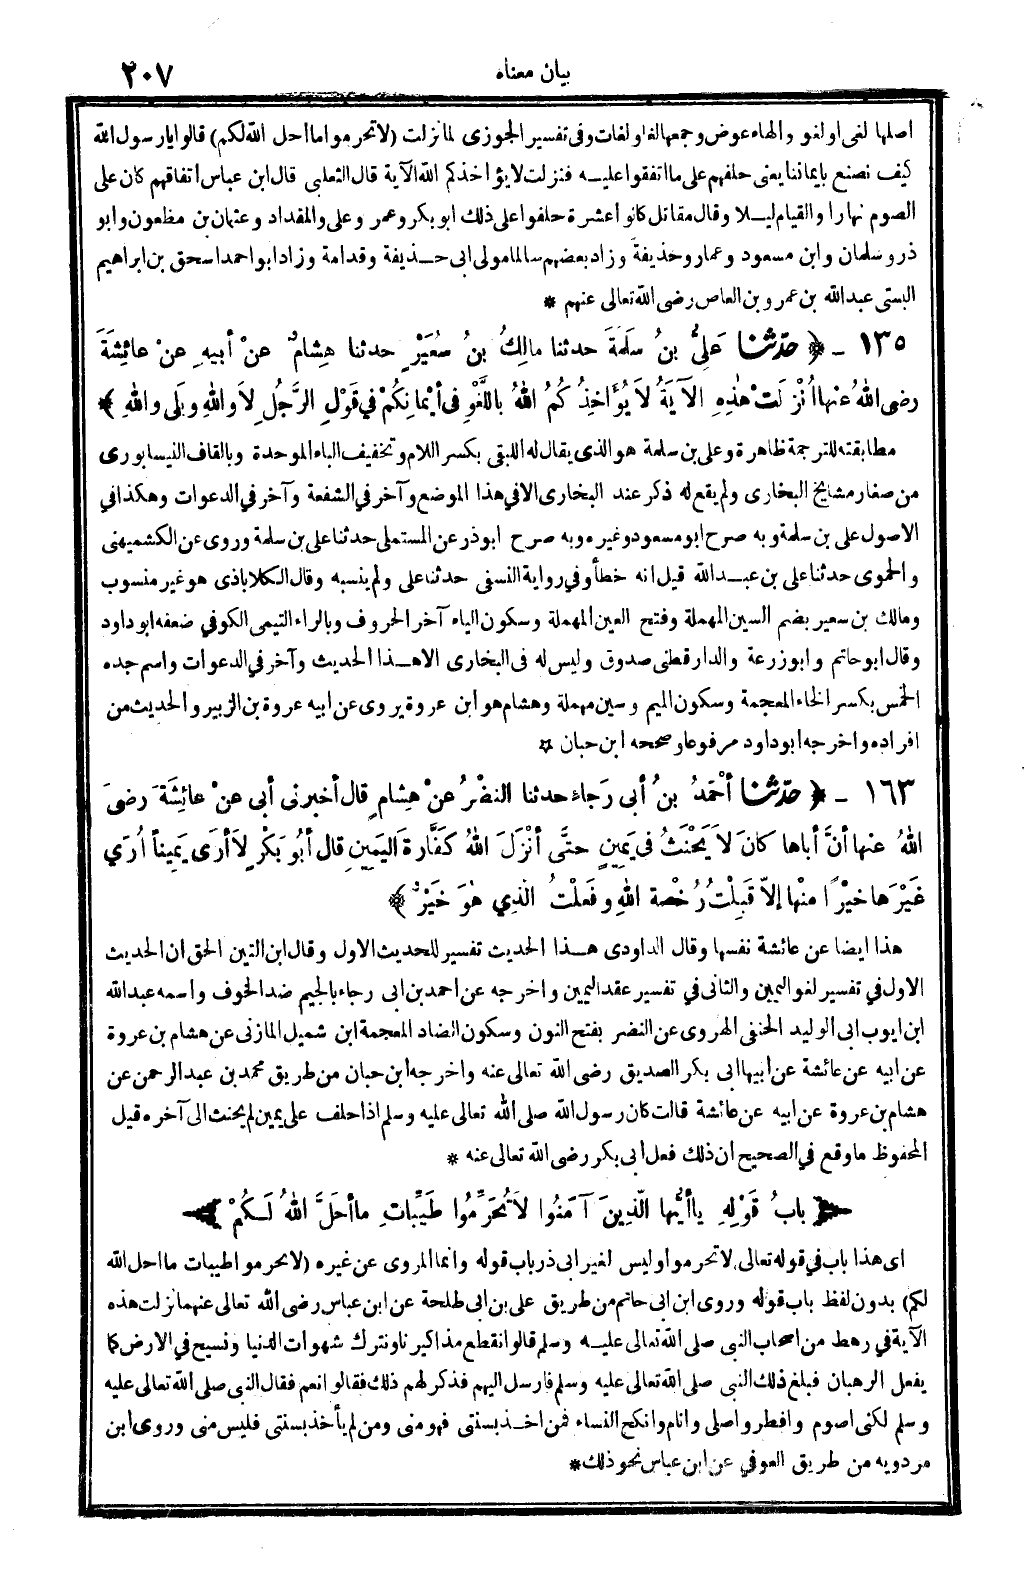 بيان معناه
٢٠٧
اصلها لغى او لغو والهاء عوض وجمعها لغا ولغات وفى تفسير الجوزى لما نزلت (لا تحرموا ما احل الله لكم) قالوا يارسول الله
كيف نصنع بايماننا يعنى حلفهم على ما اتفقوا عليه فنزلت لا يؤاخذكم الله الآية قال الثعلبى قال ابن عباس اتفاقهم كان على
الصوم نهارا والقيام ليلا وقال مقاتل كانوا عشرة حلفوا على ذلك ابو بكر وعمر وعلى والمقداد وعثمان بن مظعون وابو
ذر وسلمان وابن مسعود وعمار وحذيفة وزاد بعضهم سالما مولى ابى حذيفة وقدامة وزاد ابو احمد اسحق بن ابراهيم
البستى عبد الله بن عمرو بن العاص رضى الله تعالى عنهم *
١٣٥ - ﴿ حدّثنا عَلِىُّ بنُ سَلَمَةَ حدثنا مالِكُ بنُ سُعَيْرٍ حدثنا هِشامٌ عنْ أبيهِ عنْ عائِشَةَ
رضى اللهُ عنها أُنْزِلَتْ هٰذِهِ الآيَةُ لاَ يُؤَاخِذُكُمُ اللهُ باللَّغْوِ فى أيْمانِكُمْ في قَوْلِ الرَّجُلِ لاَ واللهِ وبَلَى واللهِ ﴾
مطابقته للترجمة ظاهرة وعلى بن سلمة هو الذى يقال له اللبقى بكسر اللام وتخفيف الباء الموحدة وبالقاف النيسابورى
من صغار مشايخ البخارى ولم يقع له ذكر عند البخارى الا فى هذا الموضع وآخر في الشفعة وآخر في الدعوات وهكذا في
الاصول على بن سلمة وبه صرح ابو مسعود وغيره وبه صرح ابوذر عن المستملى حدثنا على بن سلمة وروى عن الكشميهنى
والحموى حدثنا على بن عبد الله قيل انه خطأ وفي رواية النسفى حدثنا على ولم ينسبه وقال الكلاباذى هو غير منسوب
ومالك بن سعير بضم السين المهملة وفتح العين المهملة وسكون الياء آخر الحروف وبالراء التيمى الكوفي ضعفه ابو داود
وقال ابو حاتم وابو زرعة والدارقطنى صدوق وليس له فى البخارى الا هذا الحديث وآخر في الدعوات واسم جده
الخمس بكسر الخاء المعجمة وسكون الميم وسين مهملة وهشام هو ابن عروة يروى عن ابيه عروة بن الزبير والحديث من
افراده واخرجه ابو داود مرفوعا وصححه ابن حبان *
١٦٣ - ﴿ حدّثنا أحْمَدُ بنُ أبى رَجاء حدثنا النضْرُ عنْ هِشامٍ قال أخبرنى أبى عنْ عائِشَةَ رضىَ
اللهُ عنها أنَّ أباها كانَ لاَ يَحْنَثُ في يَمِينٍ حتَّى أنْزَلَ اللهُ كَفَّارَةَ اليَمِينِ قال أبُو بَكْرٍ لاَ أرَى يَمِيناً أُرَي
غَيْرَها خيْرًا منْها إلاّ قَبِلْتُ رُخْصةَ اللهِ وفَعَلْتُ الّذِي هُوَ خَيْرٌ ﴾
هذا ايضا عن عائشة نفسها وقال الداودى هذا الحديث تفسير للحديث الاول وقال ابن التين الحق ان الحديث
الاول في تفسير لغو اليمين والثانى في تفسير عقد اليمين واخرجه عن احمد بن ابى رجاء بالجيم ضد الخوف واسمه عبد الله
ابن ايوب ابى الوليد الحنفى الهروى عن النضر بفتح النون وسكون الضاد المعجمة ابن شميل المازنى عن هشام بن عروة
عن ابيه عن عائشة عن ابيها ابى بكر الصديق رضى الله تعالى عنه واخرجه ابن حبان من طريق محمد بن عبد الرحمن عن
هشام بن عروة عن ابيه عن عائشة قالت كان رسول الله صلى الله تعالى عليه وسلم اذا حلف على يمين لم يحنث الى آخره قيل
المحفوظ ما وقع في الصحيح ان ذلك فعل ابى بكر رضى الله تعالى عنه *
بابُ قَوْلِهِ ياأيُّها الّذِينَ آمَنُوا لاَ تُحَرِّمُوا طَيِّباتِ ما أحَلَّ اللهُ لَكُمْ
اى هذا باب في قوله تعالى لا تحرموا وليس لغير ابى ذر باب قوله وانما المروى عن غيره (لا تحرموا طيبات ما احل الله
لكم) بدون لفظ باب قوله وروى ابن ابى حاتم من طريق على بن ابى طلحة عن ابن عباس رضى الله تعالى عنهما نزلت هذه
الآية في رهط من اصحاب النبى صلى الله تعالى عليه وسلم قالوا نقطع مذاكيرنا ونترك شهوات الدنيا ونسيح في الارض كما
يفعل الرهبان فبلغ ذلك النبى صلى الله تعالى عليه وسلم فارسل اليهم فذكر لهم ذلك فقالوا نعم فقال النبى صلى الله تعالى عليه
وسلم لكنى اصوم وافطر واصلى وانام وانكح النساء فمن اخذ بسنتى فهو منى ومن لم يأخذ بسنتى فليس منى وروى ابن
مردويه من طريق العوفي عن ابن عباس نحو ذلك*